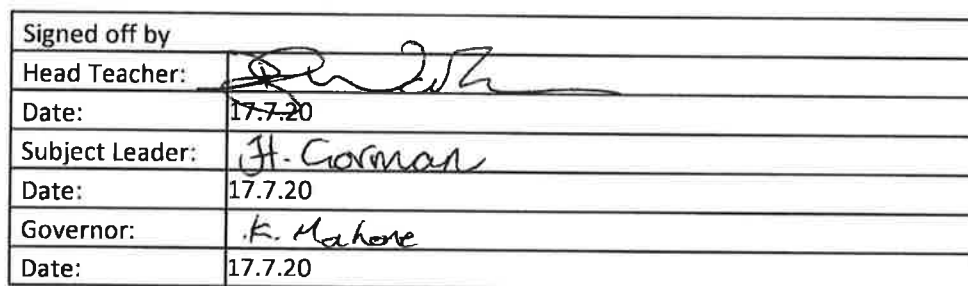 Signed off by
Head Teacher:
Date: 17.7.20
Subject Leader: H. Gorman
Date: 17.7.20
Governor: K. Mahone
Date: 17.7.20